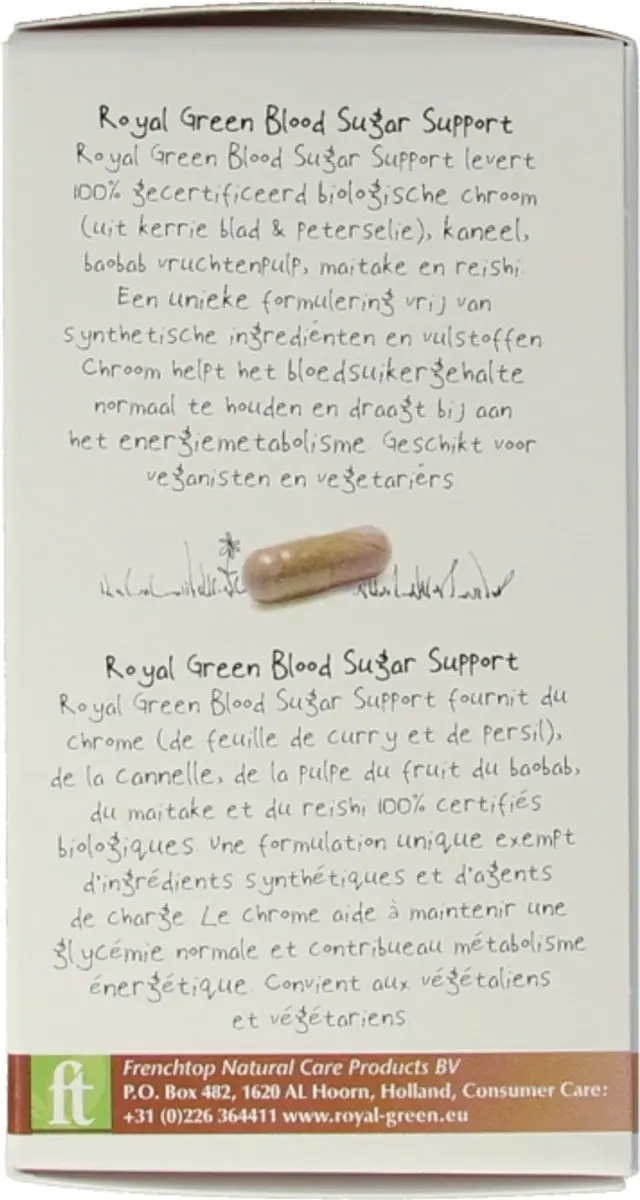 Royal Green Blood Sugar Support
Royal Green Blood Sugar Support levert
100% gecertificeerd biologische chroom
(uit kerrie blad & peterselie), kaneel,
baobab vruchtenpulp, maitake en reishi.
Een unieke formulering vrij van
synthetische ingrediënten en vulstoffen.
Chroom helpt het bloedsuikergehalte
normaal te houden en draagt bij aan
het energiemetabolisme. Geschikt voor
veganisten en vegetariërs
Royal Green Blood Sugar Support
Royal Green Blood Sugar Support fournit du
chrome (de feuille de curry et de persil),
de la cannelle, de la pulpe du fruit du baobab,
du maitake et du reishi 100% certifiés
biologiques. Une formulation unique exempt
d'ingrédients synthétiques et d'agents
de charge. Le chrome aide à maintenir une
glycémie normale et contribueau métabolisme
énergétique. Convient aux végétaliens
et végétariens.
ft
Frenchtop Natural Care Products BV
P.O. Box 482, 1620 AL Hoorn, Holland, Consumer Care:
+31 (0)226 364411 www.royal-green.eu